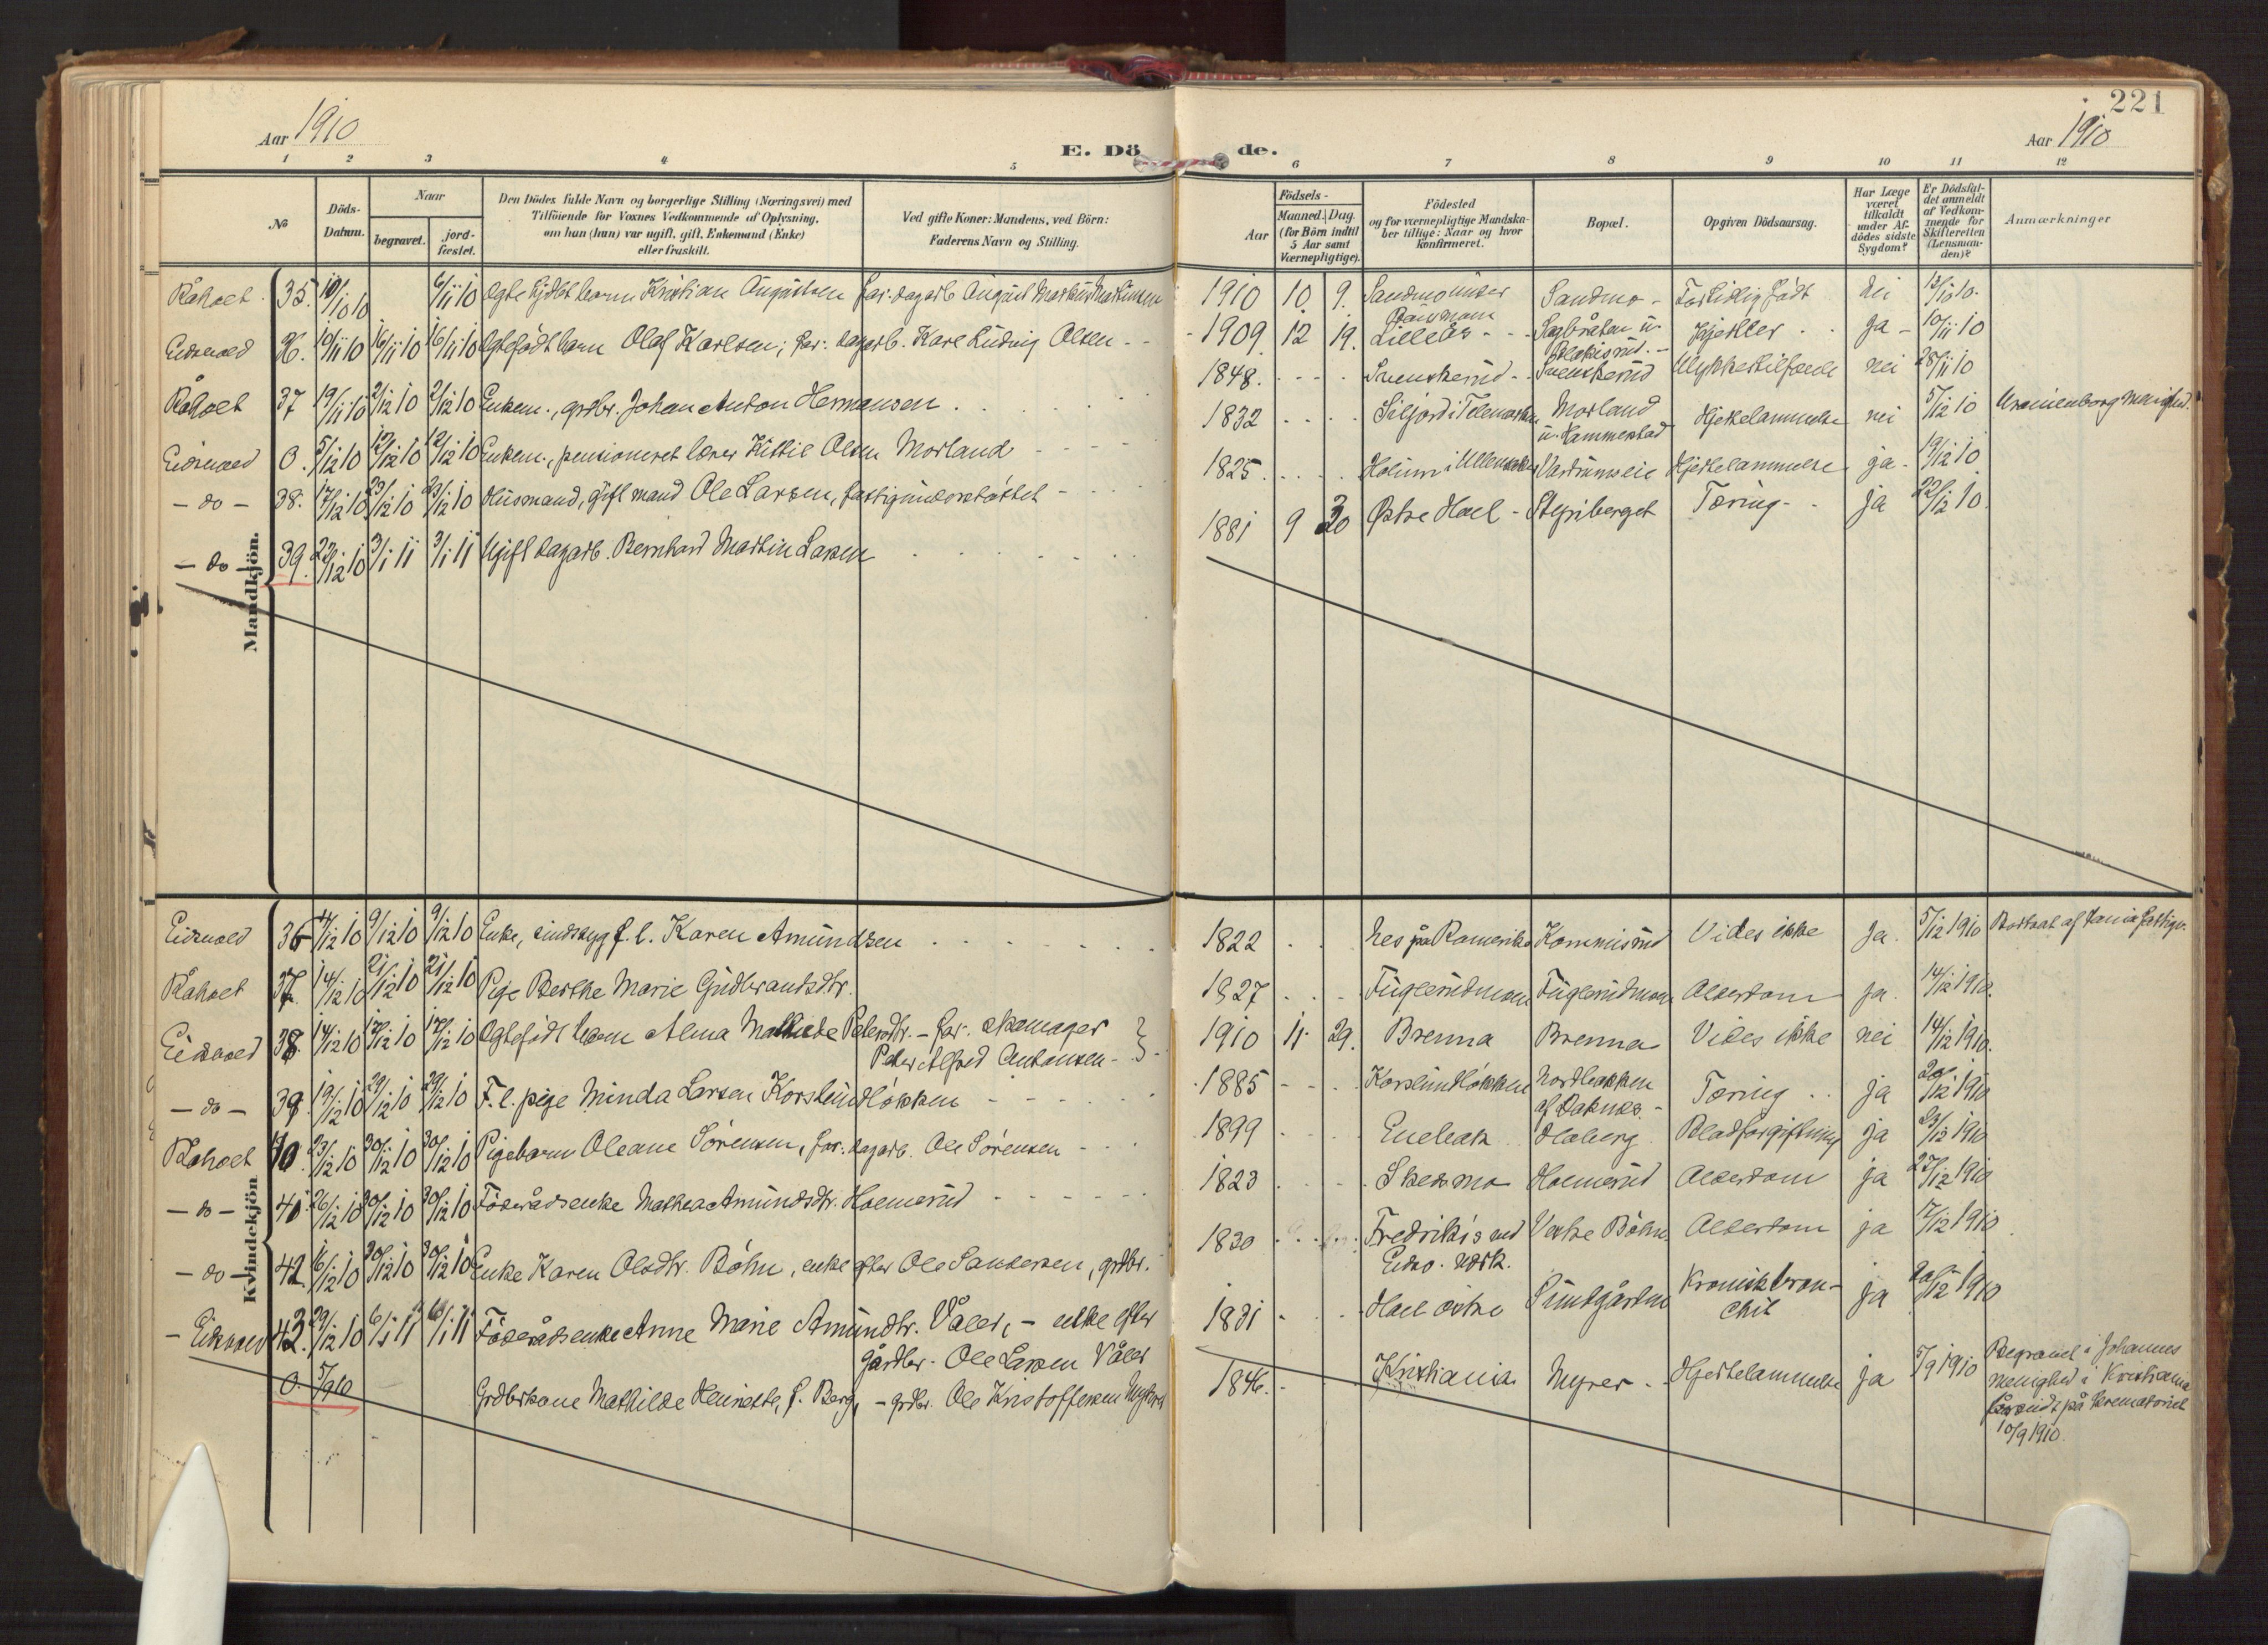 221
Aar 1910
E. Döde.
Aar 1910
1 2 3 4 5 6 7 8 9 10 11 12
No
Döds-Datum.
Naar
begravet.
jord-fæstet.
Den Dödes fulde Navn og borgerlige Stilling (Næringsvei) med
Tilföiende for Voxnes Vedkommende af Oplysning,
om han (hun) var ugift, gift, Enkemand (Enke)
eller fraskilt.
Ved gifte Koner: Mandens, ved Börn:
Faderens Navn og Stilling.
Födsels-
Aar
Maaned. Dag.
(for Börn indtil
5 Aar samt
Værnepligtige).
Födested
og for værnepligtige Mandska-
ber tillige: Naar og hvor
konfirmeret.
Bopæl.
Opgiven Dödsaarsag.
Har Læge
været
tilkaldt
under Af-
dödes sidste
Sygdom?
Er Dödsfal-
det anmeldt
af Vedkom-
mende for
Skifteretten
(Lensman-
den)?
Anmærkninger
Mandkjön.
Råholt 35. 10/10 10 6/11 10 Ægtefødt barn Kristian Augustsen far: dagarb August Markus 1910 10 9. Sandmo Sandmo - For tidlig født nei 12/10 10.
Eidsvold 36. 10/11 10 16/11 10 16/11 10 Ægtefødt barn Olaf Karlsen; far: dagarb. Karl Ludvig Olsen - - 1909 12 19. Lilleås - - Sagbråten u. ja - 10/11 10
Råholt 37 19/11 10 2/12 10 2/12 10 Enkem., grdbr. Johan Anton Hermansen 1848. Svenskerud - - Svenskerud Ulykkestilfælde nei 28/11 10
Eidsvold 0. 5/12 10 12/12 10 12/12 10 Enkem., pensioneret lærer Kittil Olsen Morland 1832 Siljord i Telemarken Morland
u. Hammerstad Hjertelammelse nei 5/12 10 Uranienborg menighed.
- do - 38. 17/12 10 23/12 10 23/12 10 Husmand, gift mand Ole Larsen, fattigunderstøttet - 1825. Holum i Ullensaker Hjertelammelse ja - 19/12 10
- do - 39. 22/12 10 3/1 11 3/1 11 Ugift dagarb. Bernhard Martin Larsen 1881 9 30 Østre Hol - Styriberget Tæring - ja 22/12 10.
Kvindekjön
Eidsvold 36 4/12 10 9/12 10 9/12 10 Enke, sindssyg f. l. Karen Amundsen 1822 Nes på Romerike Kommisrud Vides ikke Ja. 5/12 1910
Råholt 37. 14/12 10 21/12 10 21/12 10 Pige Berthe Marie Gudbrandsdtr. 1827 Fuglerudmoen Fuglerudmoen Alderdom ja. 14/12 1910.
Eidsvold 38. 14/12 10 17/12 10 17/12 10 Ægtefødt barn Alma Mathilde Petersdtr. - far: skomager
Peter Alfred Antonsen - 1910 11 29. Brenna Brenna Vides ikke nei 14/12 1910.
- do - 39. 19/12 10 29/12 10 29/12 10 F. l. pige Minda Larsen Korslundløkken 1885 Korslundløkken Nordbakken
af Doknes. - Tæring ja 20/12 1910
Råholt 40. 23/12 10 30/12 10 30/12 10 Pigebarn Oleane Sørensen, far: dagarb. Ole Sørensen - 1899 Enebak Holberg Blodforgiftning ja 23/12 1910
- do - 41 26/12 10 30/12 10 30/12 10 Føderådsenke Mathea Amundsdtr. Holmerud 1823 Skedsmo Holmerud Alderdom ja 27/12 1910
- do - 42. 16/12 10 30/12 10 30/12 10 Enke Karen Olsdtr. Bøhn, enke efter Ole Sandersen, grdbr. 1830 Fredriks ved
Eidsv. verk. Vestre Bøhn Alderdom ja 17/12 1910
- Eidsvold 43. 29/12 10 6/1 11 6/1 11 Føderådsenke Anne Marie Amundtr. Våler, - enke efter
gårdbr. Ole Larsen Våler 1831 Hol østre Sundgården Kronisk bron-
chit ja
0. 5/9 10 Grdbrkone Mathilde Henriette, f. Berg, - grdbr. Ole Kristoffersen 1846. Kristiania Myrer - Hjertelammelse ja 5/9 1910 Begravet i Johannes
menighed i Kristiania
på krematoriet
10/9 1910.